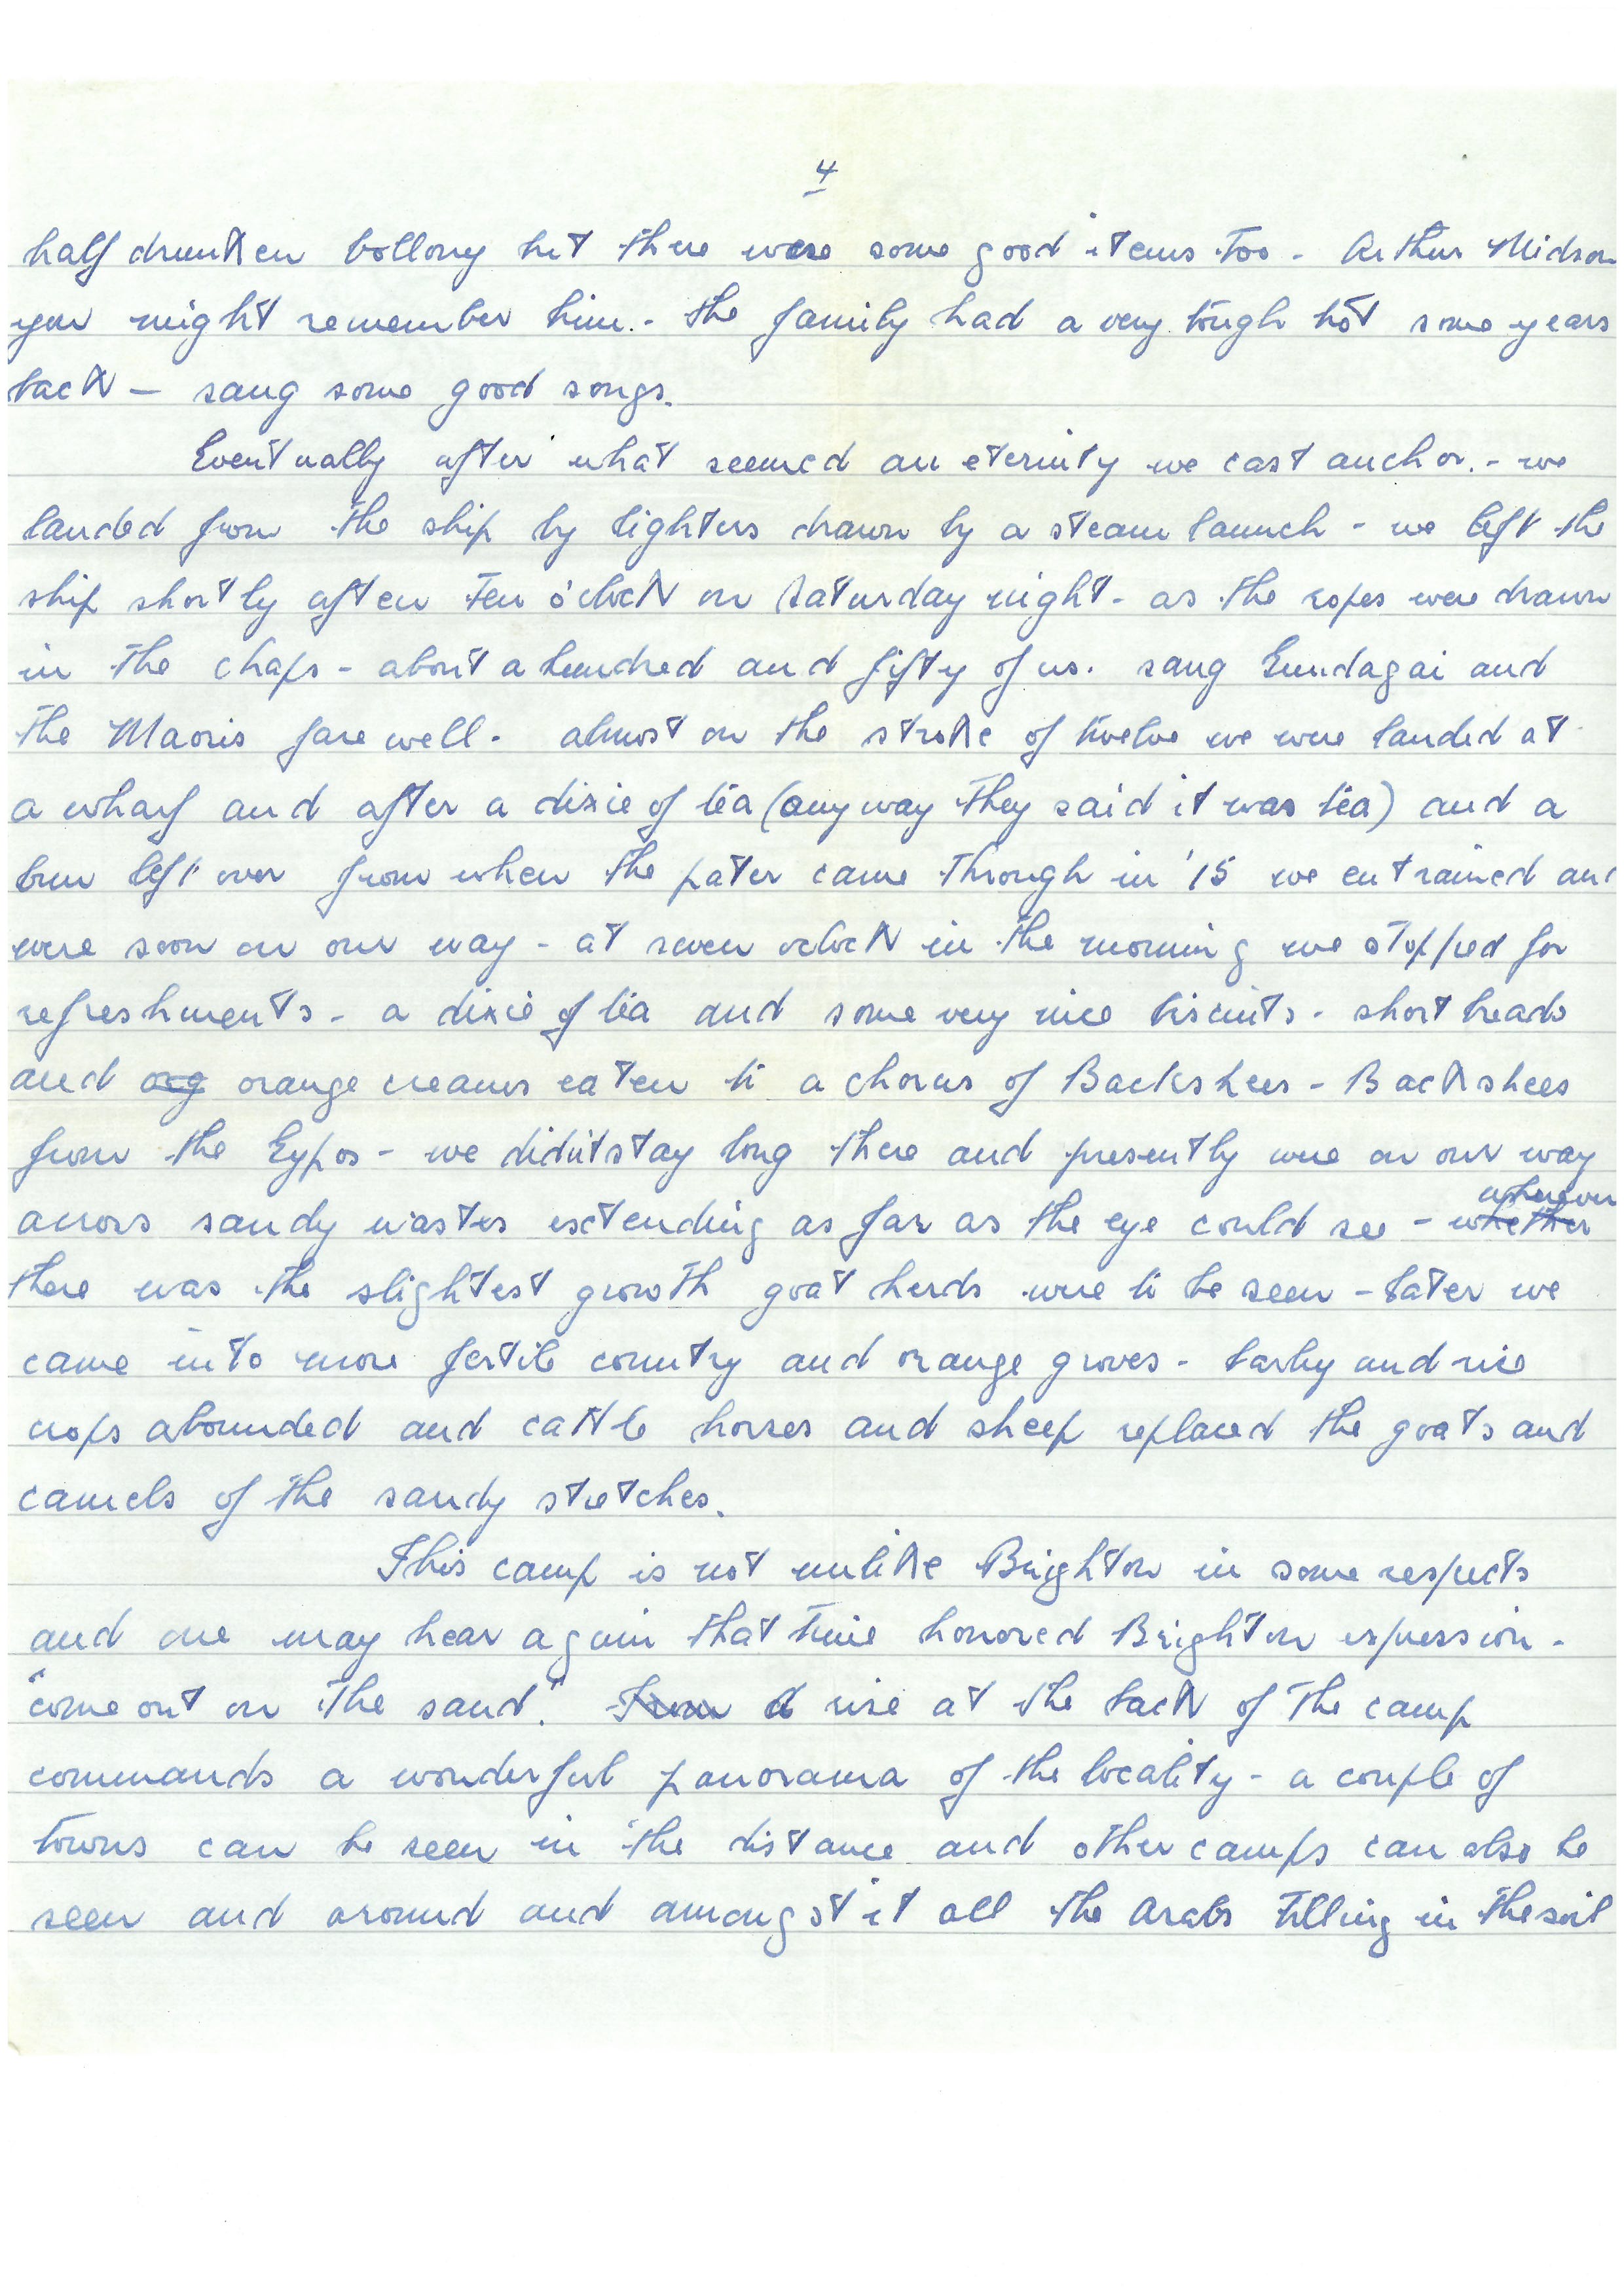 4
half drunken bollony but there were some good items too - Arthur Midson
you might remember him. - the family had a very tough trot some years
back - sang some good songs.
Eventually after what seemed an eternity we cast anchor. - we
landed from the ship by lighters drawn by a steam launch - we left the
ship shortly after ten o'clock on Saturday night - as the ropes were drawn
in the chaps - about a hundred and fifty of us. sang Gundagai and
the Maoris farewell. almost on the stroke of twelve we were landed at
a wharf and after a dixie of tea (anyway they said it was tea) and a
bun left over from when the pater came through in '15 we entrained and
were soon on our way - at seven oclock in the morning we stopped for
refreshments - a dixie of tea and some very nice biscuits - short breads
and org orange creams eaten to a chorus of Backshees - Backshees
from the Gypos - we didn't stay long there and presently were on our way
across sandy wastes extending as far as the eye could see - whether wherever
there was the slightest growth goat herds were to be seen - later we
came into more fertile country and orange groves - barley and rice
crops abounded and cattle horses and sheep replaced the goats and
camels of the sandy stretches.
This camp is not unlike Brighton in some respects
and one may hear again that time honored Brighton expression -
"come out on the sand." From A rise at the back of the camp
commands a wonderful panorama of the locality - a couple of
towns can be seen in the distance and other camps can also be
seen and around and amongst it all the Arabs tilling in the soil